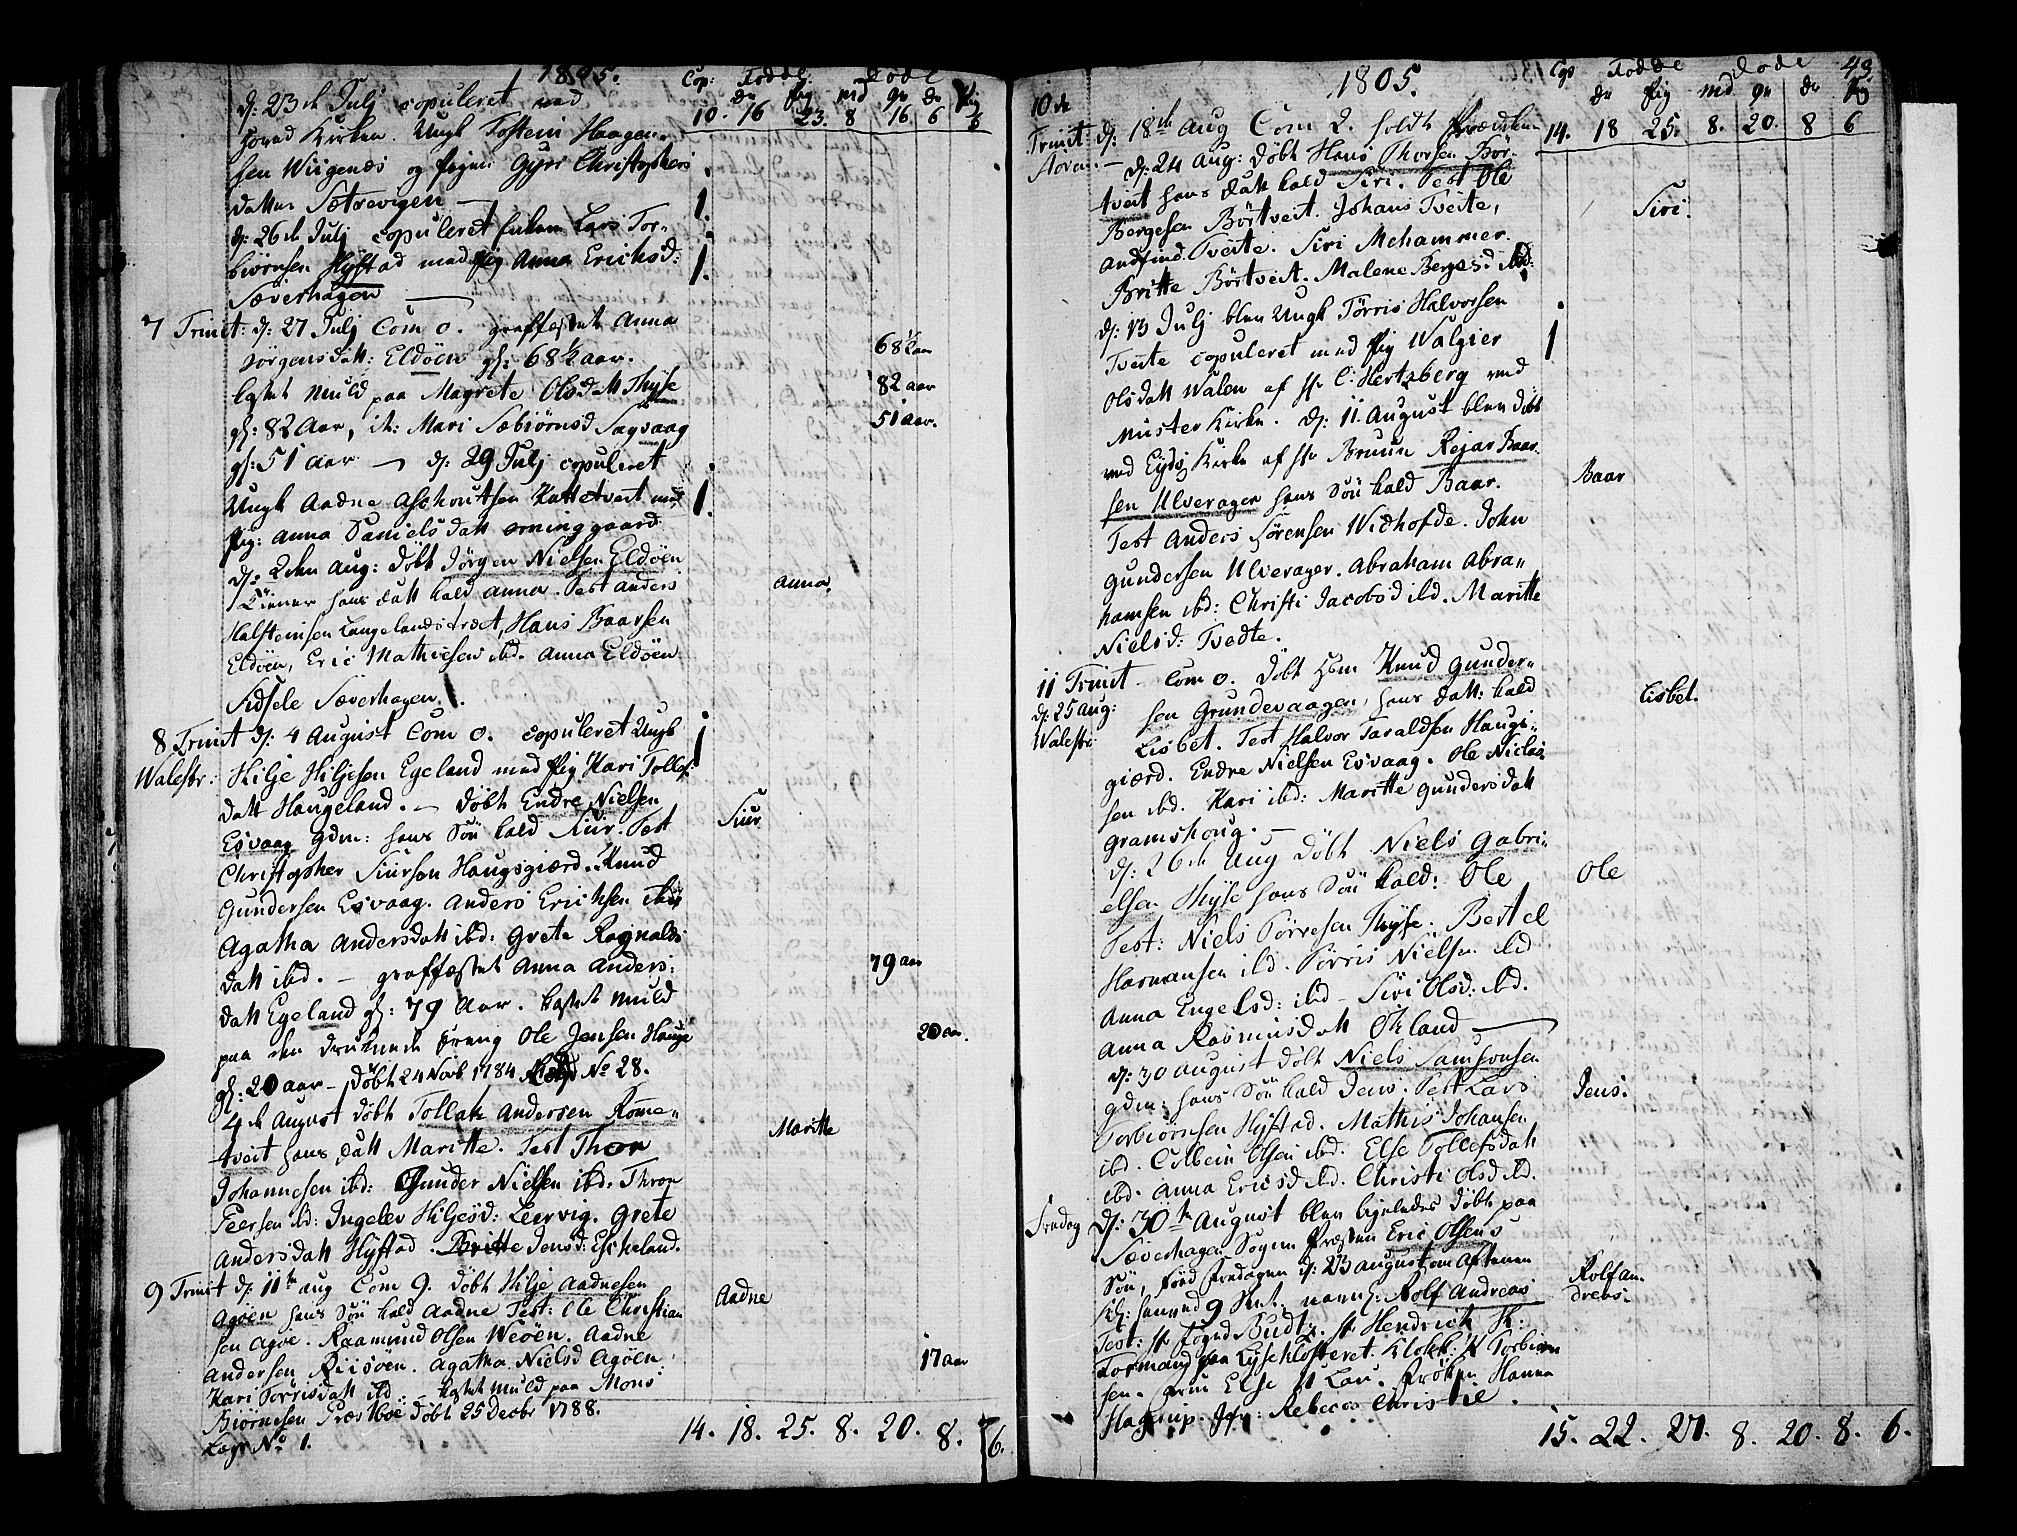 1805.
Cop: Fødde. Døde
Dr Pig md qv Dr Pig
10. 16 23. 8 16 6 6
d: 23de Julj copuleret ved
hoved Kirken. Ungk Tostein Haagen-
sen Wiigenæs og Pigen Gyri Christophers
datter Sætrevigen —
d: 26de Julj copuleret Lars Tor-
biørnsen Hystad med Pig Anna Erichsd:
Sæverhagen —
7 Trinit: d: 27 Julj Com 0. graffæstet Anna
Jørgensdatt: Eldøen gl: 68½ aar.
68½ aar
kastet Muld paa Magrete Olsdatt Thyse
82 aar
gl: 82 Aar, it: Mari Sæbiørnsd Sagvaag
51 aar.
gl: 51 aar — d: 29 Julj copuleret
Ungk Aadne Aschoutsen Kattetveit med
Pig: Anna Danielsdatt orninggaard
d: 2den Aug: Døbt Jørgen Nielsen Eldøen
hans datt kald Anna. Test Anders
Anna.
Halsteinsen Langelandstræet, Hans Baarsen
Eldøen, Eric Mathiesen ibd. Anna Eldøen
Sidsele Sæverhagen.
8 Trinit d: 4 August Com 0. copuleret Ungk
Walestr: Hilje Hiljesen Egeland med Pig Kari Tollefs
datt Haugeland. — Døbt Endre Nielsen
Esvaag gdm: hans Søn kald Siur. Test
Siur
Christopher Siursen Haugsgiærd. Knud
Gundersen Esvaag. Anders Erichsen ibid
Agatha Andersdatt ibd: Grete Ragnalds
datt ibd. — graffæstet Anna Anders:
79 aar
datt Egeland gl: 79 Aar. kastet muld
paa den druknede Dreng Ole Jensen Hauge
20 aar.
gl: 20 aar — Døbt 24 Novb 1784 No 28.
4de August Døbt Tollak Andersen Rome-
tveit hans datt Maritte. Test Thor
Maritte
Johannesen ibd: Gunder Nielsen ibd. Thron
Peersen ibd: Ingelev Hiljesd: Leervig. Grete
Andersdatt Hystad. Britte Jensd: Escheland.
9 Trinit d: 11te Aug Com 9. Døbt Hilje Aadnesen
Agøen hans Søn kald Aadne Test: Ole Christian
Aadne
sen Agøe. Raamund Olsen Weøen. Aadne
Andersen Riisøen. Agatha Nielsd Agøen.
17 aar
Kari Torrisdatt ibd: — kastet muld paa Mons
Biørnesen Præstboe Døbt 25 Decbr 1788.
No 1.
14. 18. 25. 8. 20. 8. 6.
1805.
Cop Fødde Døde 43
Dr Pig md qv Dr Pig
14. 18 25. 8. 20. 8 6
10de
Trinit: d: 18de Aug Com 2. holdt
— d: 24 Aug: Døbt Hans Thorsen Bør-
tveit hans datt kald Siri. Test Ole
Siri.
Bergesen Børtveit. Johans Tveite,
Andfind Tveite. Siri Mehammer.
Britte Børtveit. Malene Bergesd ibd:
d: 13 Julj blev Ungk Tørris Halvorsen
Tveite copuleret med Pig Walgier
Olsdatt Walen af Hr C: Hertzberg ved
Muster Kirke. d: 11. August blev døbt
ved Eyds Kirke af Hr Bruun Rejar Baar-
sen Ulverager hans Søn kald Baar.
Baar
Test Anders Sørensen Widhofde. John
Gundersen Ulverager. Abraham Abra-
hamsen ibd: Christi Jacobsd ibd. Maritte
Nielsd: Tvedte.
11 Trinit Com 0. Døbt Knud Gunder-
d: 25 Aug: sen Grundevaagen, hans datt: kald
Lisbet.
Walestr: Lisbet. Test Halvor Taraldsen Haugs-
giærd. Endre Nielsen Esvaag. Ole Niels
sen ibd. Kari ibd: Maritte Gundersdatt
Gramshoug. —
d: 26de Aug Døbt Niels Gabri-
elsen Thyse hans Søn kald: Ole
Ole
Test: Niels Tørresen Thyse. Bertel
Harmansen ibd. Tørris Nielsen ibd
Anna Engelsd: ibd — Siri Olsd: ibd.
Anna Rasmusdatt Økland —
d: 30 August Døbt Niels Samsonsen
gdm: hans Søn kald Jens. Test Lars
Jens.
Torbiørnsen Hystad. Mathis Johansen
ibd. Colbein Olsen ibd. Else Tollefsdatt
ibd. Anna Ericsd ibd. Christi Olsd ibd.
Fredag d: 30te August blev ligeledes døbt paa
Sæverhagen Sogne Præsten Eric Olsens
Søn, født Fredagen d: 23 August om Aftenen
Kl: 9 nemlig: Rolf Andreas
Rolf An-
dreas.
Test: Hr Foged Budtz. Hr Hendrick
Formand paa Lysekloster. Klokk: Torbiørn
sen. Frue Else Frøken Hanna
Hagerup. Jfr: Rebecca Christie.
15. 22. 27. 8. 20. 8. 6.